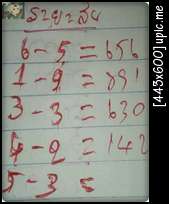 6-5=656
1-9=891
3-3=630
4-2=142
5-3=
[443x600] upic.me